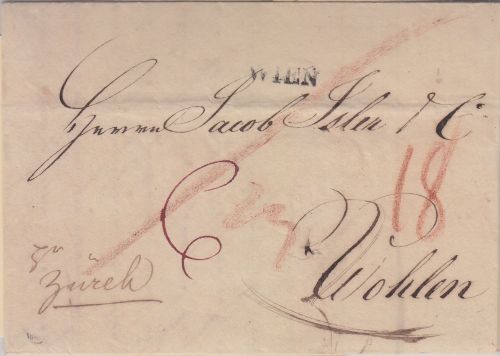 WIEN
Herrn Jacob Isler & C
18
Wohlen
pr
Zürch